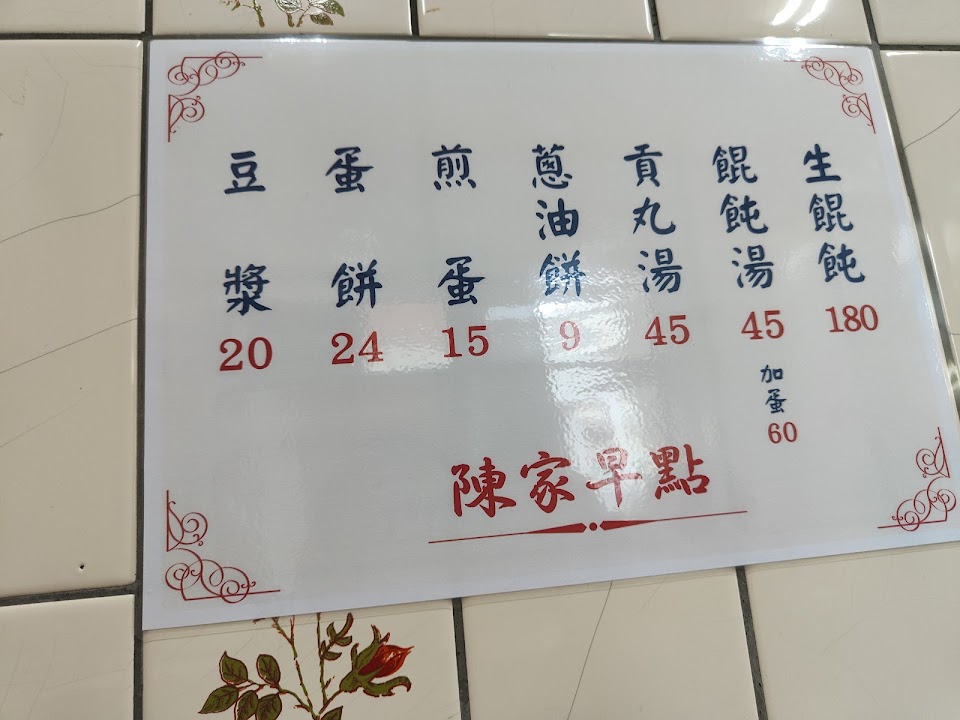 生餛飩 180
餛飩湯 45
加蛋 60
貢丸湯 45
蔥油餅 9
煎蛋 15
蛋餅 24
豆漿 20
陳家早點